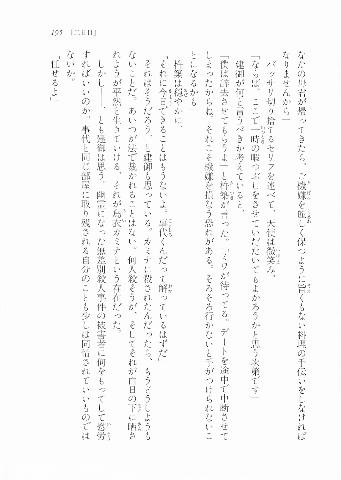 195 【二日目】
なかの男者が帰ってきたら、ご機嫌を麗しく保つように旨くもない料理の手伝いをしなければ
なりませんから」
バッサリ切り捨てるセリフを述べて、天使は微笑み、
「ならば、ここで一時の暇つぶしをさせていただいてもよかろうかと思う次第です」
建御が何と言うべきか考えていると、
「僕は辞去させてもらうよ」と杵築が言った。「ミワが待ってる。デートを途中で中断させて
しまったからね。それこそ機嫌を損なう恐れがある。そろそろ行かないと手がつけられないこ
とになるかも」
杵築は穏やかに、
「それに今日できることはもうないよ。事代くんだって解っているはずだ」
それはそうだろう、と建御も思っている。カミナに殺されたんだったら、もうどうしようも
ないことだ。あいつが法で裁かれることはない。何人殺そうが、そしてそれが白日の下に晒さ
れようが平然と生きていける。それが烏衣カミナという存在だった。
しかし――、とも建御は思う。幽霊になった無差別殺人事件の被害者に何をもってして慰労
すればいいのか、事代と同じ部屋に取り残される自分のことも少しは同情されていいものでは
ないか。
「任せると」